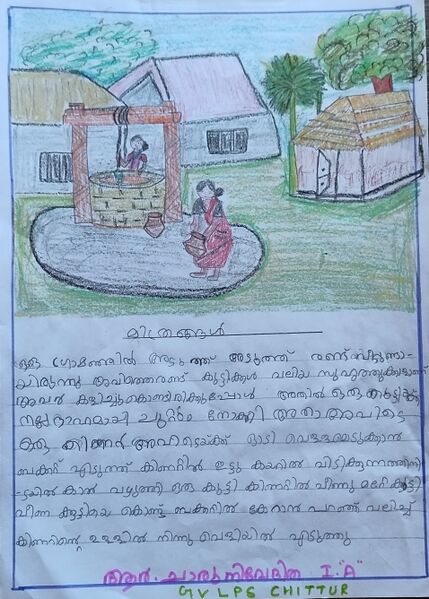 മിത്രങ്ങൾ
ഒരു ഗ്രാമത്തിൽ അടുത്ത് അടുത്ത് രണ്ട് വീടുണ്ടാ-
യിരുന്നു അവിടത്തെ രണ്ട് കുട്ടികൾ വലിയ സുഹൃത്തുക്കളാണ്
അവർ കളിച്ചുകൊണ്ടിരിക്കുമ്പോൾ അതിൽ ഒരു കുട്ടിക്ക്
നല്ല ദാഹമായി ചുറ്റും നോക്കി അതാ അവിടെ
ഒരു കിണർ അവിടേയ്ക്ക് ഓടി വെള്ളമെടുക്കാൻ
ബക്കറ്റ് എടുത്ത് കിണറ്റിൽ ഇട്ടു കയറിൽ പിടിക്കുന്നതിനി
-ടയിൽ കാൽ വഴുതി ഒരു കുട്ടി കിണറ്റിൽ വീണു മറ്റേ കുട്ടി
വീണ കുട്ടിയെ കൊണ്ട് ബക്കറ്റിൽ കേറാൻ പറഞ്ഞ് വലിച്ച്
കിണറിന്റെ ഉള്ളിൽ നിന്നു വെളിയിൽ എടുത്തു
ആർ. ചാരുനിവേദിത I."A"
GVLPS CHITTUR